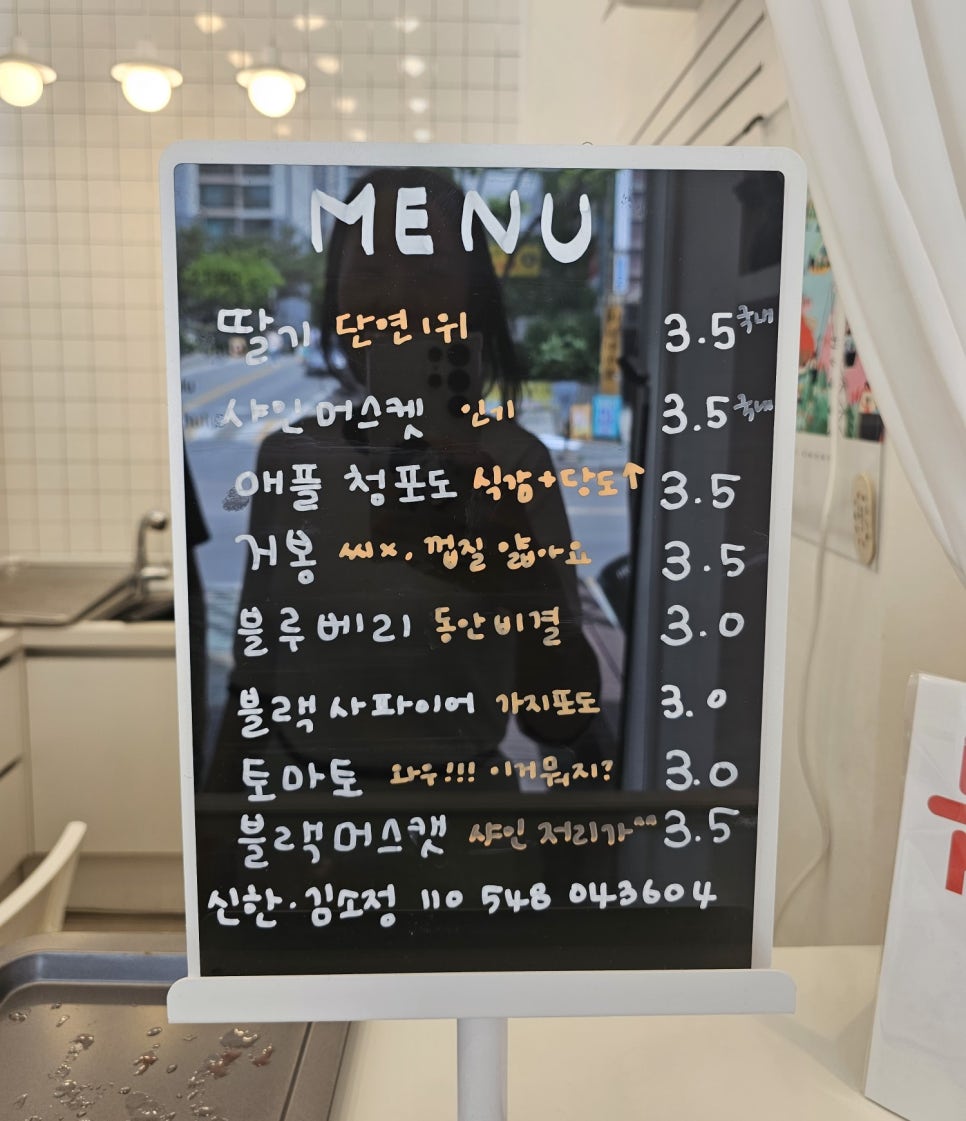 MENU
딸기 단연 1위 3.5 국내
샤인머스켓 인기 3.5 국내
애플 청포도 식감+당도↑ 3.5
거봉 씨x, 껍질 얇아요 3.5
블루베리 동안비결 3.0
블랙사파이어 가지포도 3.0
토마토 와우!!! 이거뭐지? 3.0
블랙머스캣 샤인 저리가^^ 3.5
신한·김소정 110 548 043604